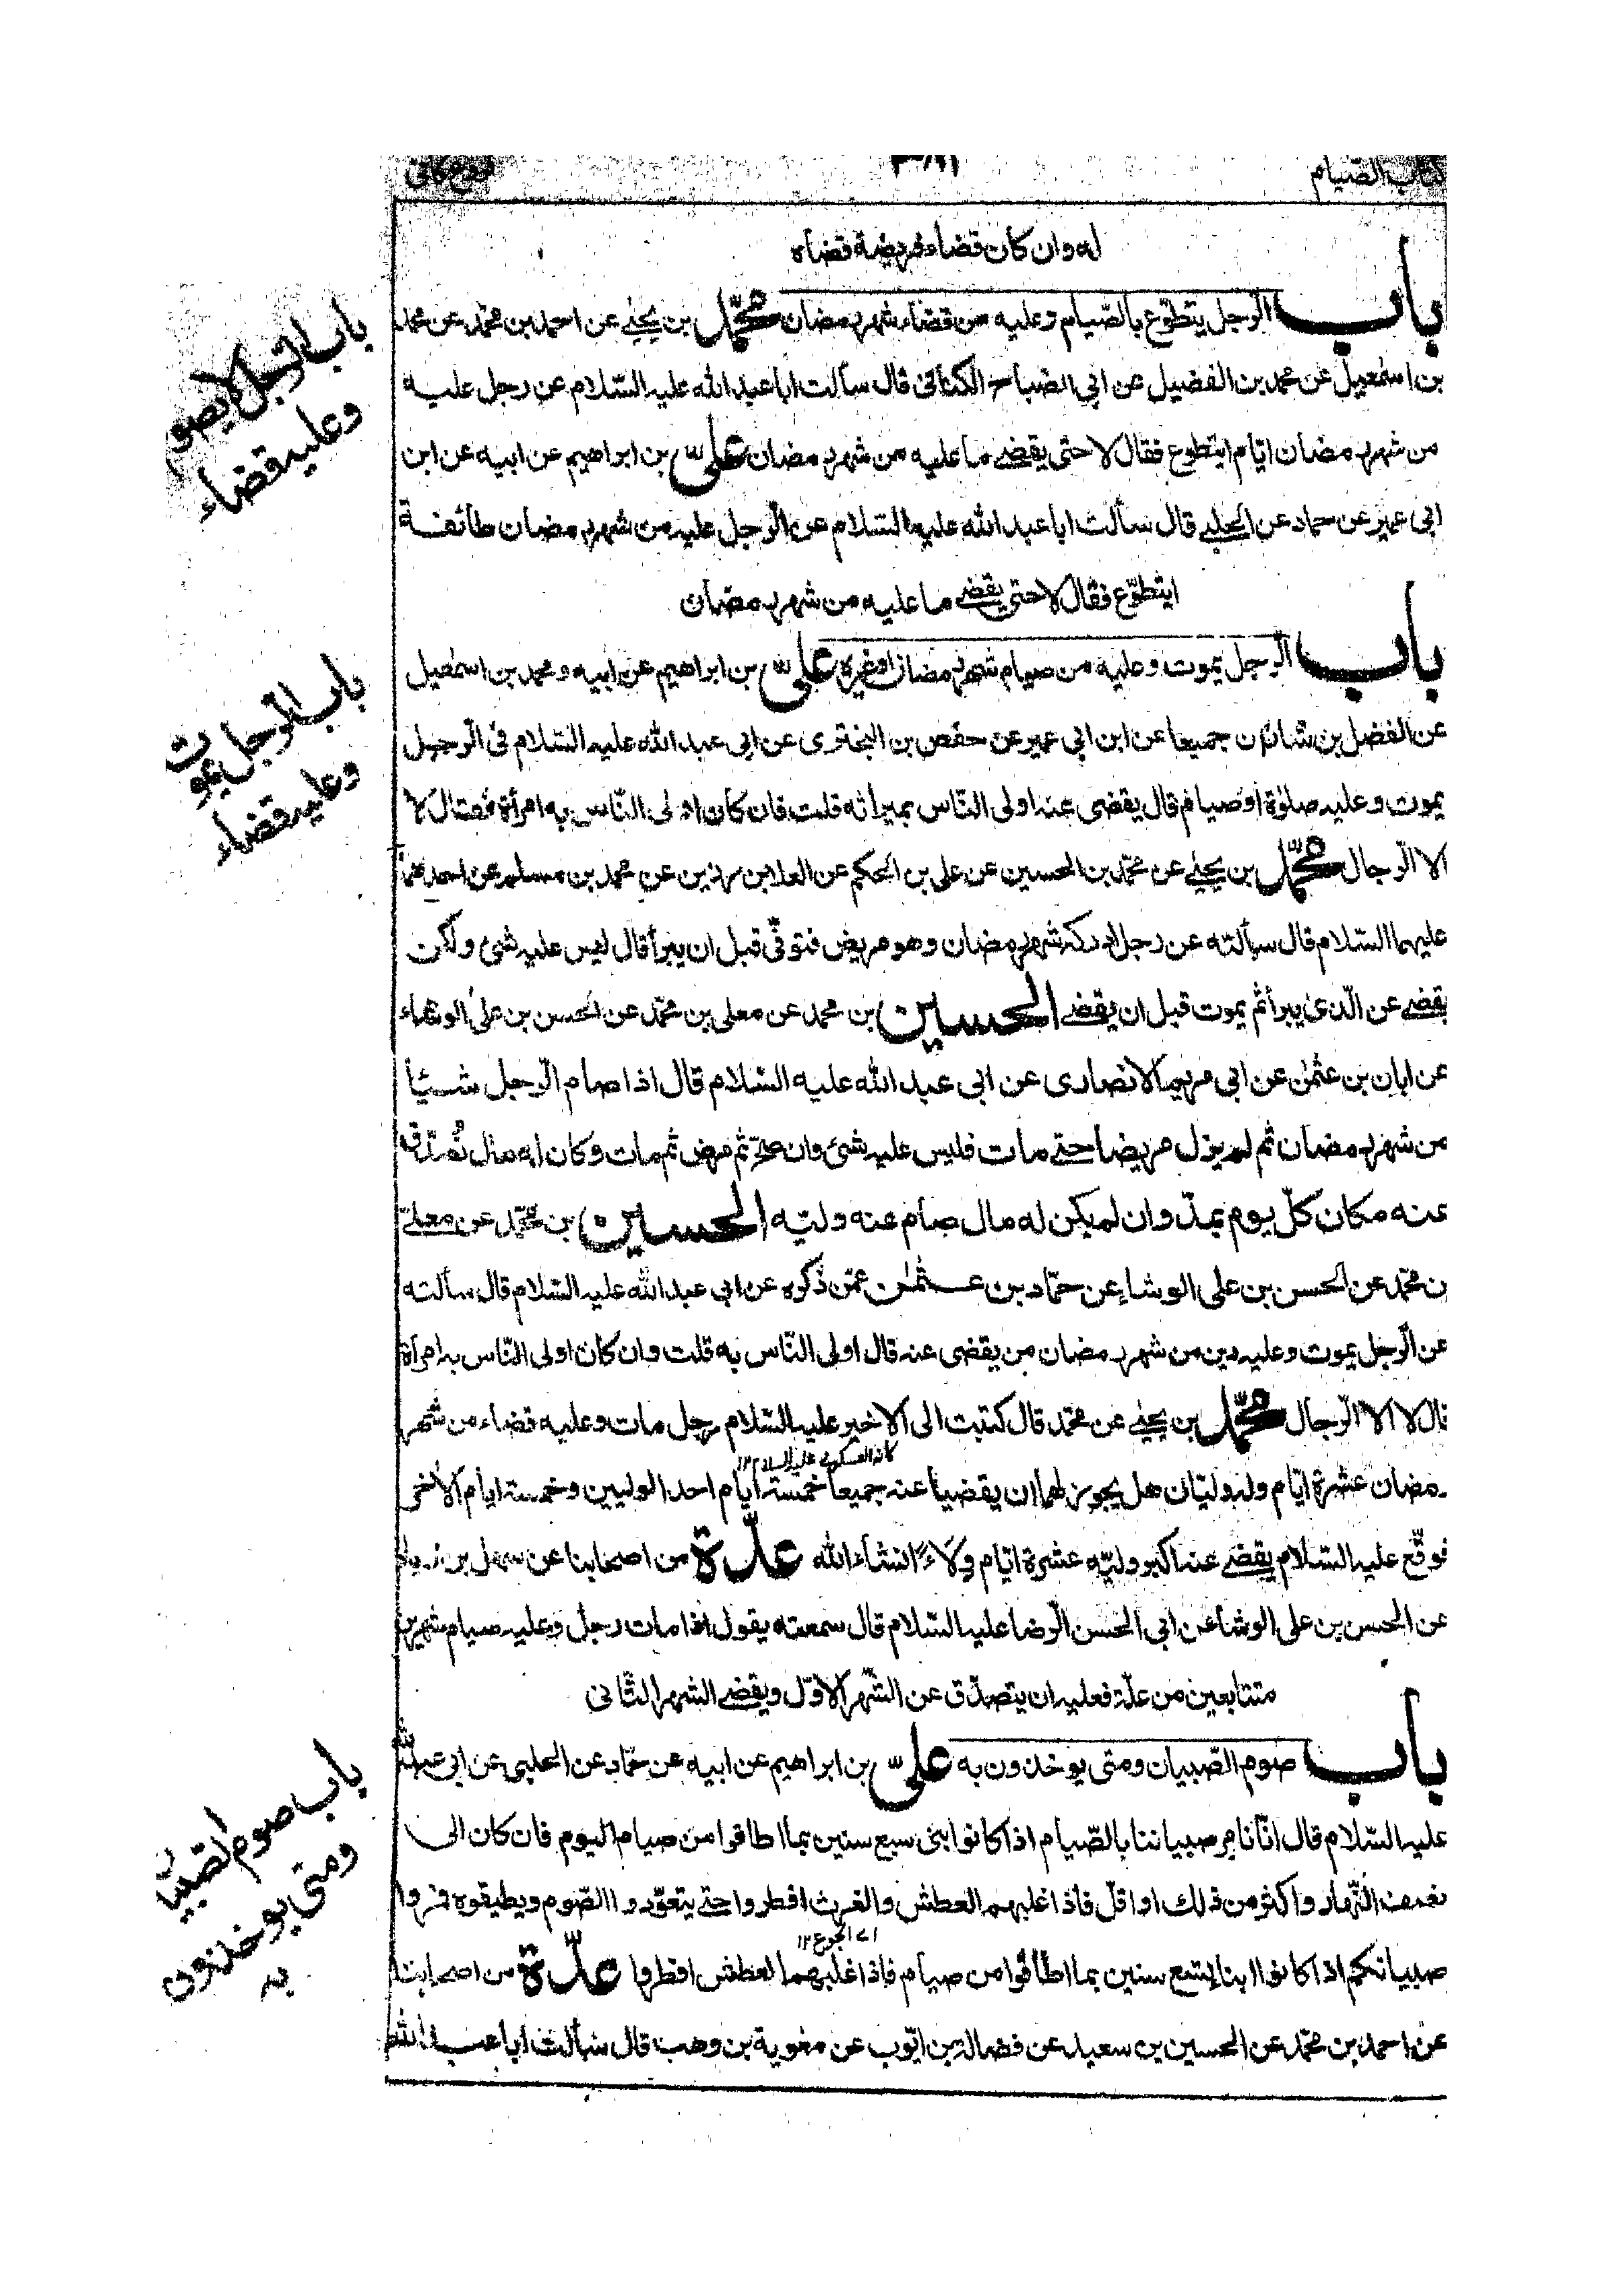 كتاب الصيام
فروع كافى
له وان كان قضاء فريضة قضاه
باب الرجل يتطوع بالصيام وعليه من قضاء شهر رمضان محمد بن يحيى عن احمد بن محمد عن محمد
بن اسمعيل عن محمد بن الفضيل عن ابى الصباح الكنانى قال سألت ابا عبد الله عليه السلام عن رجل عليه
من شهر رمضان ايام ايتطوع فقال لا حتى يقضى ما عليه من شهر رمضان على بن ابراهيم عن ابيه عن ابن
ابى عمير عن حماد عن الحلبى قال سألت ابا عبد الله عليه السلام عن الرجل عليه من شهر رمضان طائفة
ايتطوع فقال لا حتى يقضى ما عليه من شهر رمضان
باب الرجل يموت وعليه من صيام شهر رمضان او غيره على بن ابراهيم عن ابيه ومحمد بن اسمعيل
عن الفضل بن شاذان جميعا عن ابن ابى عمير عن حفص بن البخترى عن ابى عبد الله عليه السلام فى الرجل
يموت وعليه صلوة او صيام قال يقضى عنه اولى الناس بميراثه قلت فان كان اولى الناس به امرأة فقال لا
الا الرجال محمد بن يحيى عن محمد بن الحسين عن على بن الحكم عن العلا بن رزين عن محمد بن مسلم عن احدهما
عليهما السلام قال سألته عن رجل ادركه شهر رمضان وهو مريض فتوفى قبل ان يبرأ قال ليس عليه شئ ولكن
يقضى عن الذى يبرأ ثم يموت قبل ان يقضى الحسين بن محمد عن معلى بن محمد عن الحسن بن على الوشاء
عن ابان بن عثمن عن ابى مريم الانصارى عن ابى عبد الله عليه السلام قال اذا صام الرجل شيئا
من شهر رمضان ثم لم يزل مريضا حتى مات فليس عليه شئ وان صح ثم مرض ثم مات وكان له مال تصدق
عنه مكان كل يوم بمد وان لم يكن له مال صام عنه وليه الحسين بن محمد عن معلى
بن محمد عن الحسن بن على الوشاء عن حماد بن عثمن عمن ذكره عن ابى عبد الله عليه السلام قال سألته
عن الرجل يموت وعليه دين من شهر رمضان من يقضى عنه قال اولى الناس به قلت وان كان اولى الناس به امرأة
قال لا الا الرجال محمد بن يحيى عن محمد قال كتبت الى الاخير عليه السلام رجل مات وعليه قضاء من شهر
كانه العسكرى عليه السلام ١٢
رمضان عشرة ايام وله وليان هل يجوز لهما ان يقضيا عنه جميعا خمسة ايام احد الوليين وخمسة ايام الاخر
فوقع عليه السلام يقضى عنه اكبر وليه عشرة ايام ولاء انشاء الله عدة من اصحابنا عن سهل بن زياد
عن الحسن بن على الوشا عن ابى الحسن الرضا عليه السلام قال سمعته يقول اذا مات رجل وعليه صيام شهرين
متتابعين من علة فعليه ان يتصدق عن الشهر الاول ويقضى الشهر الثانى
باب صوم الصبيان ومتى يوخذون به على بن ابراهيم عن ابيه عن حماد عن الحلبى عن ابى عبد الله
عليه السلام قال انا نامر صبياننا بالصيام اذا كانوا بنى سبع سنين بما اطاقوا من صيام اليوم فان كان الى
نصف النهار واكثر من ذلك او اقل فاذا غلبهم العطش والغرث افطروا حتى يتعودوا الصوم ويطيقوه فمروا
اى الجوع ١٢
صبيانكم اذا كانوا ابناء تسع سنين بما اطاقوا من صيام فاذا غلبهم العطش افطروا عدة من اصحابنا
عن احمد بن محمد عن الحسين بن سعيد عن فضالة بن ايوب عن معوية بن وهب قال سألت ابا عبد الله
باب الرجل لا يصو
وعليه قضاء
باب الرجل يموت
وعليه قضاء
باب صوم الصبيان
ومتى يوخذون
به